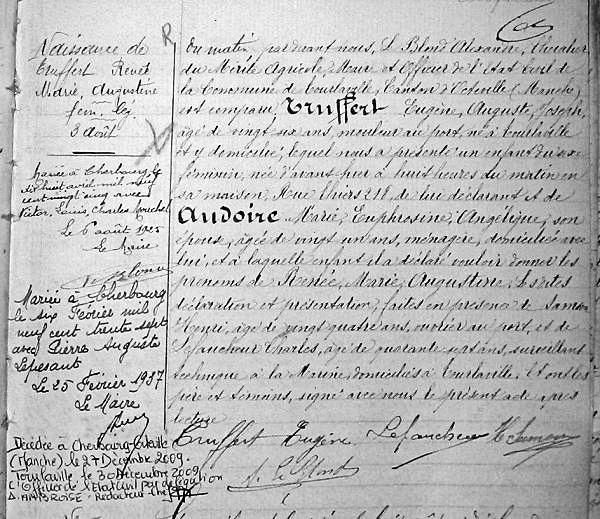 Naissance de
Truffert Renée
Marie, Augustine
fém. lég.
3 août
Mariée à Cherbourg, le
dix huit avril mil neuf
cent vingt cinq avec
Victor, Louis, Charles
Le 6 août 1925
Le Maire
Mariée à Cherbourg
le six Février mil
neuf cent trente sept
avec Pierre Auguste
Lepesant
Le 25 Février 1937
Le Maire
Décédée à Cherbourg-Octeville
(Manche) le 27 Décembre 2009.
Tourlaville, le 30 Décembre 2009
L'Officier de l'Etat Civil par délégation
D. AMBROISE. Rédacteur Chef
du matin, par devant nous, Le Blond Alexandre, Chevalier
du Mérite Agricole, Maire et Officier de l'Etat Civil de
la Commune de Tourlaville, Canton d'Octeville (Manche)
est comparu, Truffert Eugène, Auguste, Joseph,
âgé de vingt six ans, mouleur au port, né à Tourlaville
et y domicilié, lequel nous a présenté un enfant du sexe
féminin, née d'avant hier à huit heures du matin en
sa maison, Rue Thiers 218, de lui déclarant et de
Audoire Marie, Euphrosine, Angélique, son
épouse, âgée de vingt un ans, ménagère, domiciliée avec
lui, et à laquelle enfant il a déclaré vouloir donner les
prénoms de Renée, Marie, Augustine. Les dites
déclaration et présentation, faites en présence de Samson
Henri, âgé de vingt quatre ans, ouvrier au port, et de
Lefaucheur Charles, âgé de quarante sept ans, surveillant
technique à la Marine, domiciliés à Tourlaville. Et ont les
père et témoins, signé avec nous le présent acte après
lecture.
Truffert Eugène Lefaucheur H. Samson
A. Le Blond